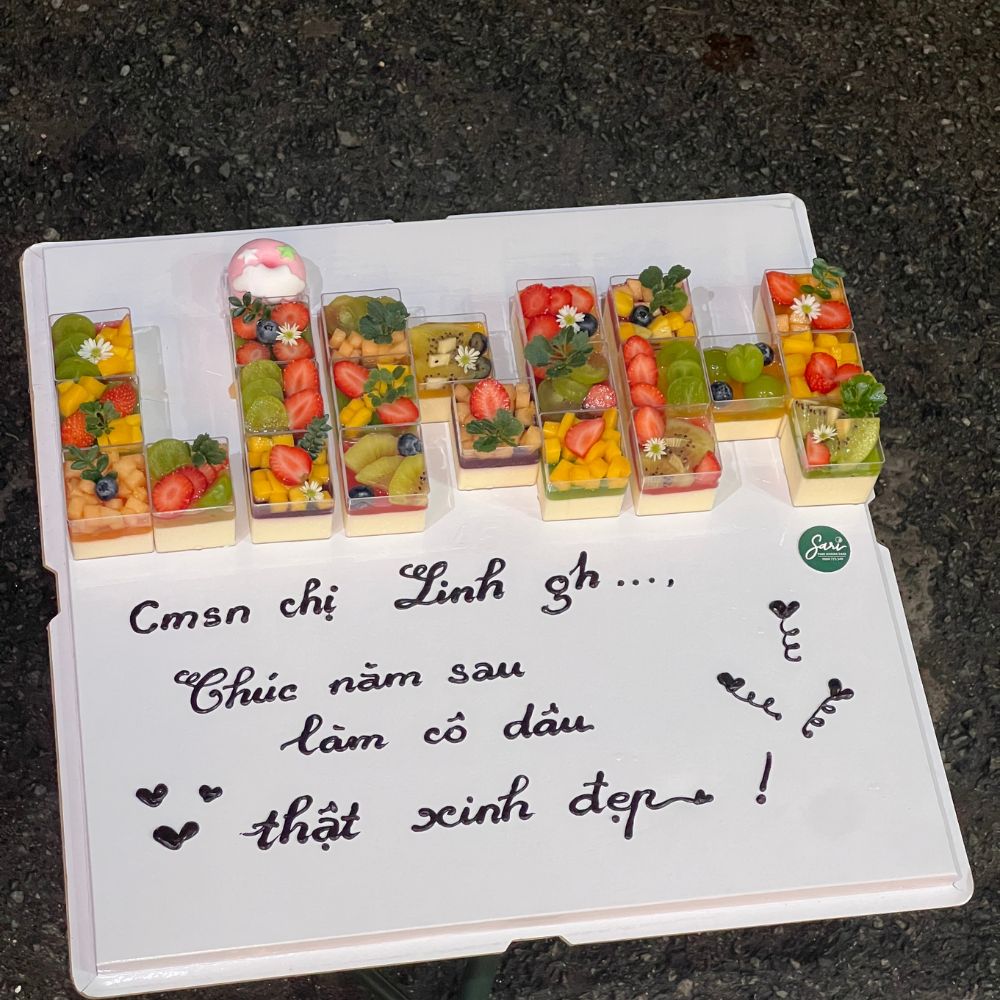 Cmsn chị Linh gh....,
Chúc năm sau
làm cô dâu
thật xinh đẹp !
Sari